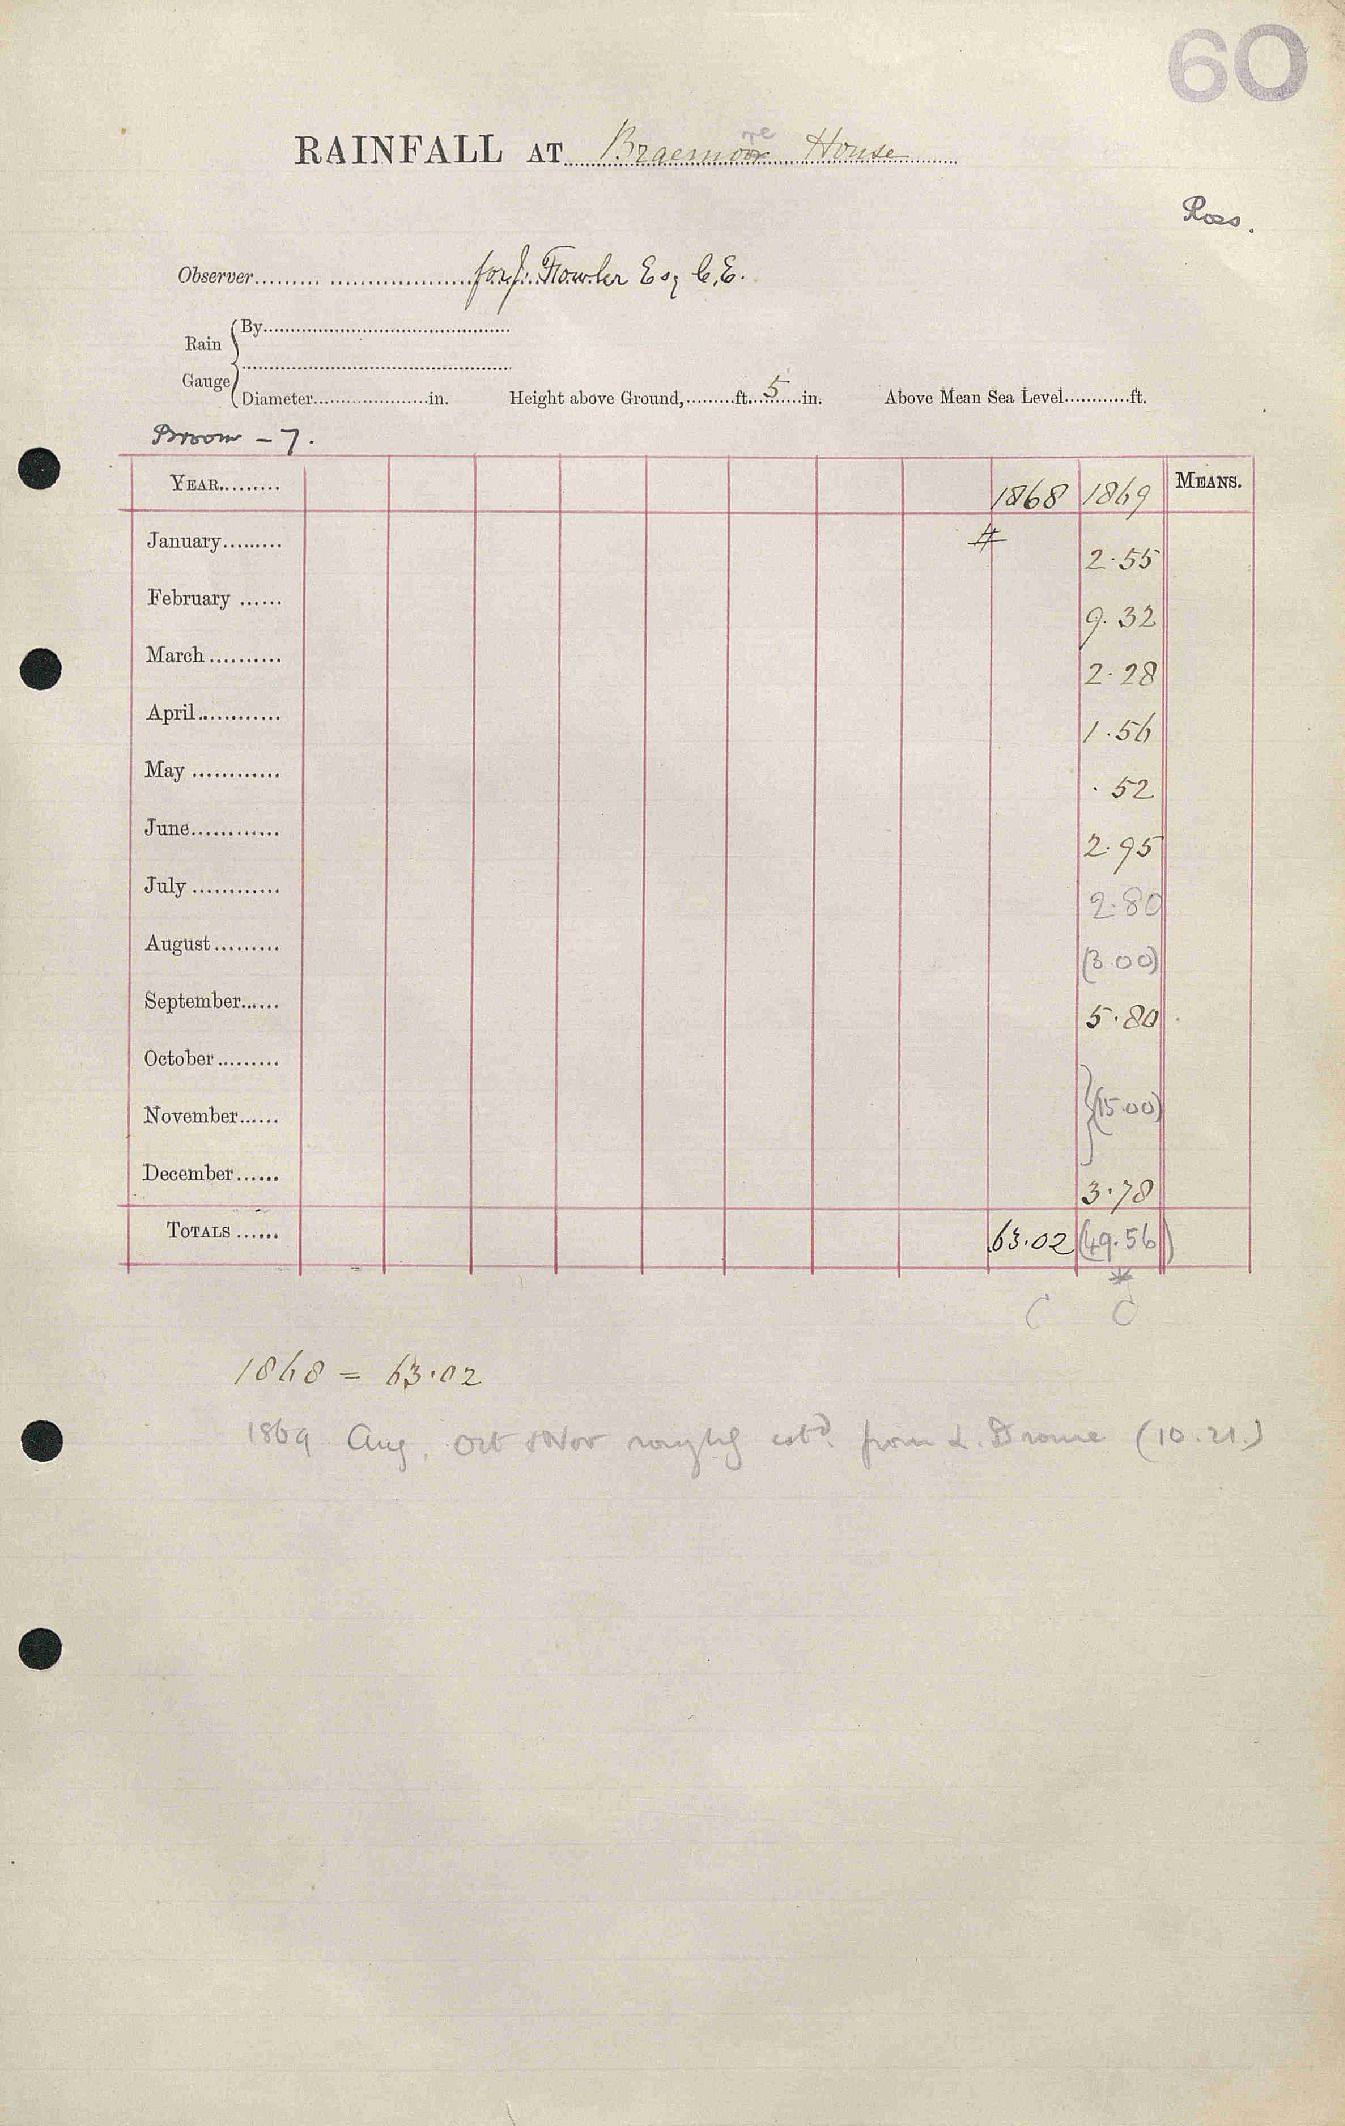 60
RAINFALL AT Braemore House
Ross.
Observer for J. Fowler Esq C.E.
Rain Gauge
By
Diameter in. Height above Ground, ft. 5 in. Above Mean Sea Level ft.
Broom - 7.
YEAR 1868 1869 MEANS.
January # 2.55
February 9.32
March 2.28
April 1.56
May .52
June 2.95
July 2.80
August (3.00)
September 5.80
October
November } (15.00)
December 3.78
TOTALS 63.02 (49.56)
*
C C
1868 = 63.02
1869 Aug, Oct & Nov roughly estd. from L. Broom (10.21.)